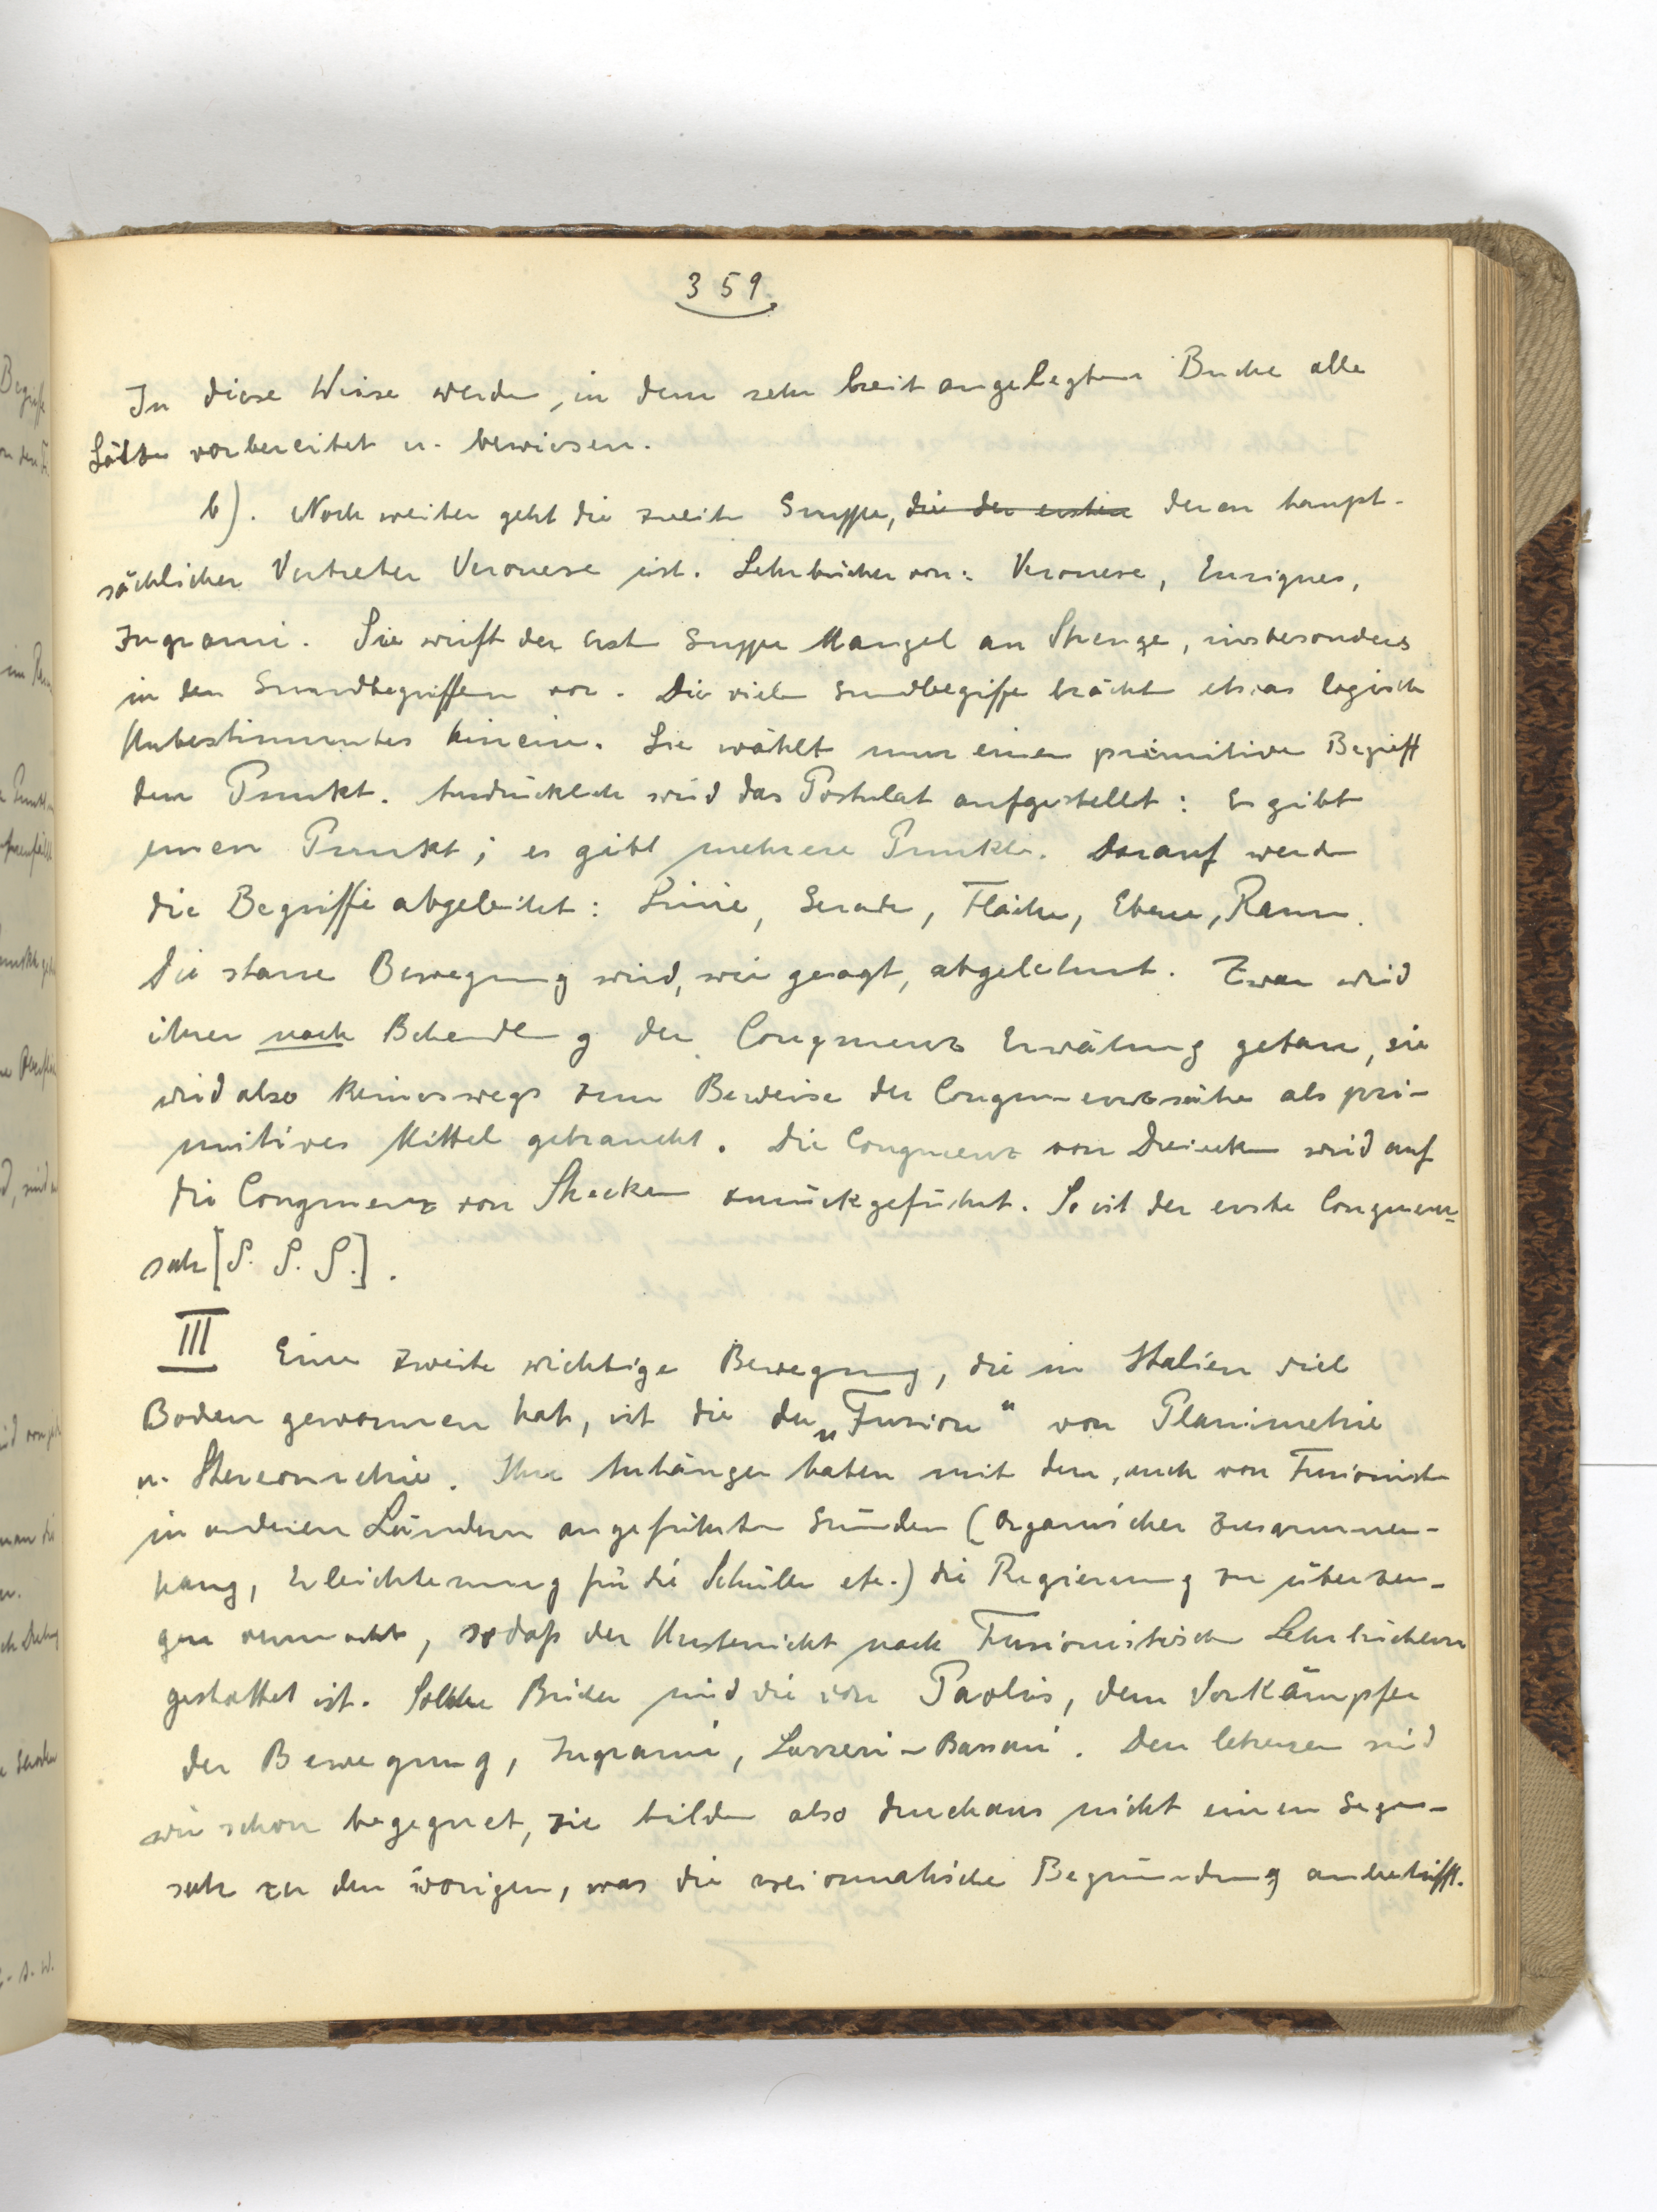 359
In diese Weise werden, in dem sehr breit angelegten Buche alle
Sätze vorbereitet u. bewiesen.
b). Noch weiter geht die zweite Gruppe, die der ersten deren haupt-
sächlicher Vertreter Veronese ist. Lehrbücher von: Veronese, Enriques,
Ingrami. Sie wirft der erst Gruppe Mangel an Strenge, insbesonders
in den Grundbegriffen vor. Die vielen Grundbegriffe brächten etwas logisch
Unbestimmtes hinein. Sie wählt nur einen primitiven Begriff
den Punkt. Ausdrücklich wird das Postulat aufgestellt: Es gibt
einen Punkt; es gibt mehrere Punkte. Darauf werden
die Begriffe abgeleitet: Linie, Gerade, Fläche, Ebene, Raum.
Die starre Bewegung wird, wie gesagt, abgelehnt. Zwar wird
ihrer nach Behandlg der Congruenz Erwähnung getan, sie
wird also keineswegs zum Beweise der Congruenzsätze als pri-
mitives Mittel gebraucht. Die Congruenz von Dreiecken wird auf
die Congruenz von Strecken zurückgeführt. So ist der erste Congruenz-
satz [S. S. S.].
III Eine zweite wichtige Bewegung, die in Italien viel
Boden gewonnen hat, ist die der „Fusion“ von Planimetrie
u. Stereometrie. Ihre Anhänger haben mit den, auch von Fusionisten
in anderen Ländern angeführten Gründen (organischer Zusammen-
hang, Erleichterung für die Schüler etc.) die Regierung zu überzeu-
gen vermocht, sodaß der Unterricht nach Fusionistischen Lehrbüchern
gestattet ist. Solche Bücher sind die von Paolis, dem Vorkämpfer
der Bewegung, Ingrami, Lazzeri-Bassani. Den letzteren sind
wir schon begegnet, sie bilden also durchaus nicht einen Gegen-
satz zu den vorigen, was die axiomatische Begründung anbetrifft.